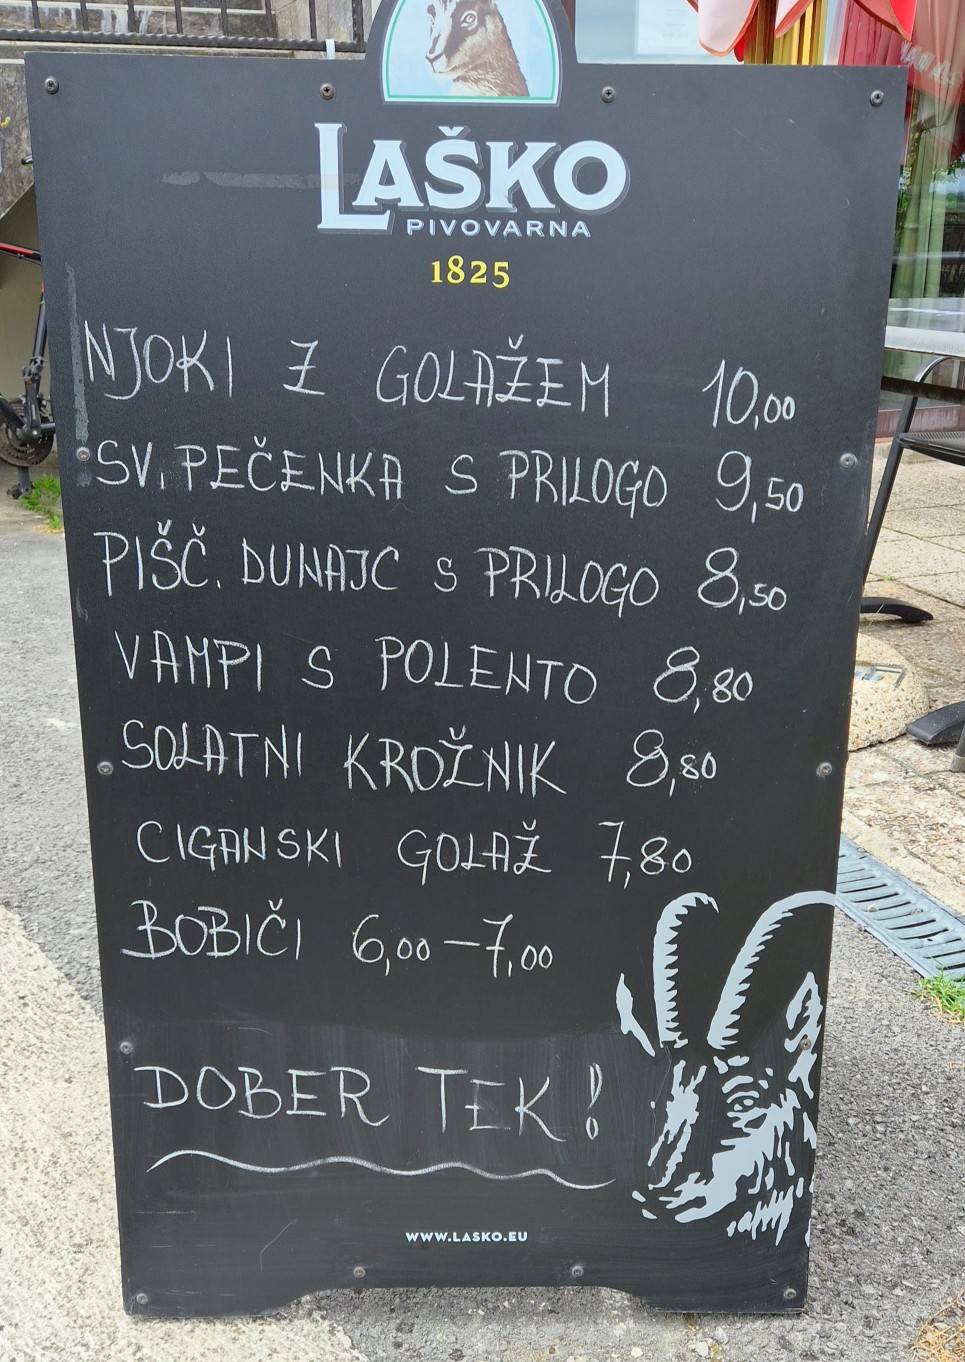 LAŠKO
PIVOVARNA
1825
NJOKI Z GOLAŽEM 10,00
SV. PEČENKA S PRILOGO 9,50
PIŠČ. DUNAJC S PRILOGO 8,50
VAMPI S POLENTO 8,80
SOLATNI KROŽNIK 8,80
CIGANSKI GOLAŽ 7,80
BOBIČI 6,00 – 7,00
DOBER TEK!
WWW.LASKO.EU